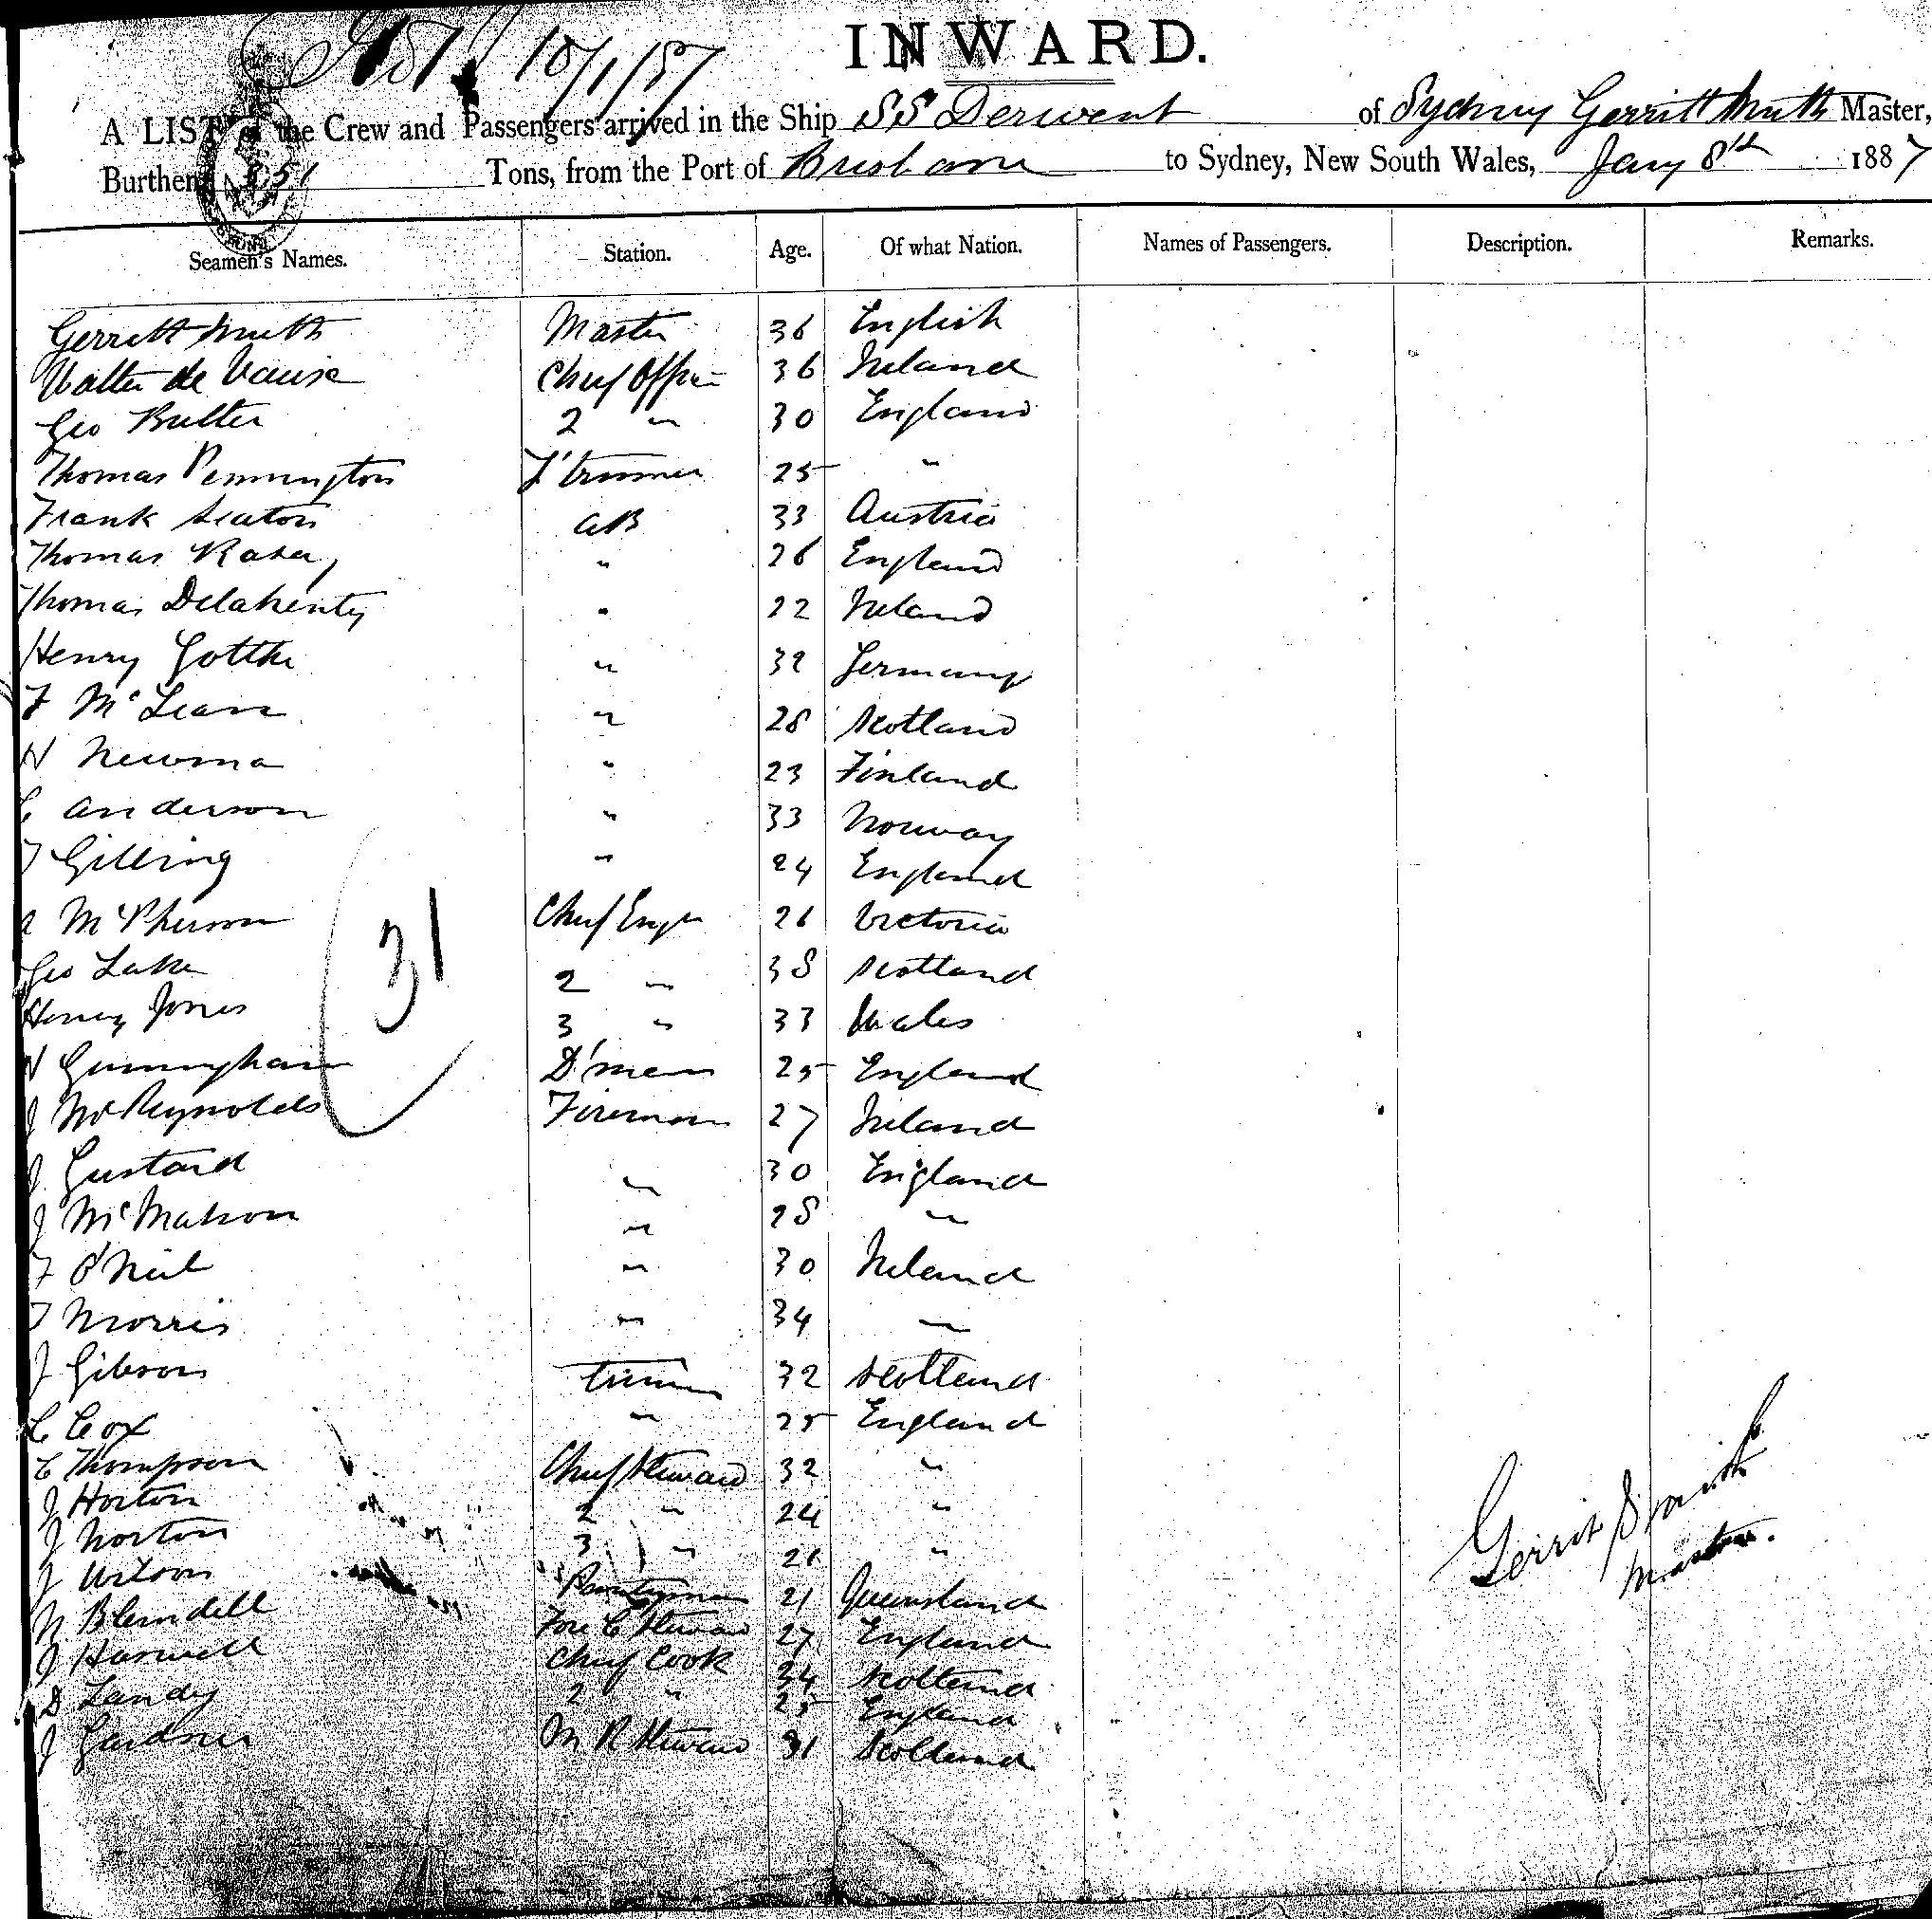 10/1/87
INWARD.
A LIST of the Crew and Passengers arrived in the Ship SS Derwent of Sydney Gerritt Smith Master,
Burthen 351 Tons, from the Port of Brisbane to Sydney, New South Wales, Jany 8th 1887
Seamen's Names. Station. Age. Of what Nation. Names of Passengers. Description. Remarks.
Gerritt Smith Master 36 English
Walter de Chief Officer 36 Ireland
Geo Butler 2 " 30 England
Thomas Pennington L'trimmer 25 "
Frank Seaton AB 33 Austria
Thomas " 26 England
Thomas Delahenty " 22 Ireland
Henry " 32 Germany
F McLean " 28 Scotland
N Newma " 23 Finland
C Anderson " 33 Norway
T Gilling " 24 England
A McPherson Chief Engr 26 Victoria
Geo Lake 2 " 38 Scotland
31
Henry Jones 3 " 33 Wales
D'man 25 England
J McReynolds Fireman 27 Ireland
J Gustard " 30 England
J McMahon " 28 "
F O'Neil " 30 Ireland
T Morris " 34 "
J Gibson trimmer 32 Scotland
C Cox " 25 England
C Thompson Chief Steward 32 "
J Horton 2 " 24 "
J Norton 3 " 21 "
J Wilson Pantryman 21 Queensland
N Blundell Fore C Steward 27 England
J Harwell Chief Cook 34 Scotland
D Landy 2 " 25 England
J Gardner M R Steward 31 Scotland
Gerrit Smith
Master.